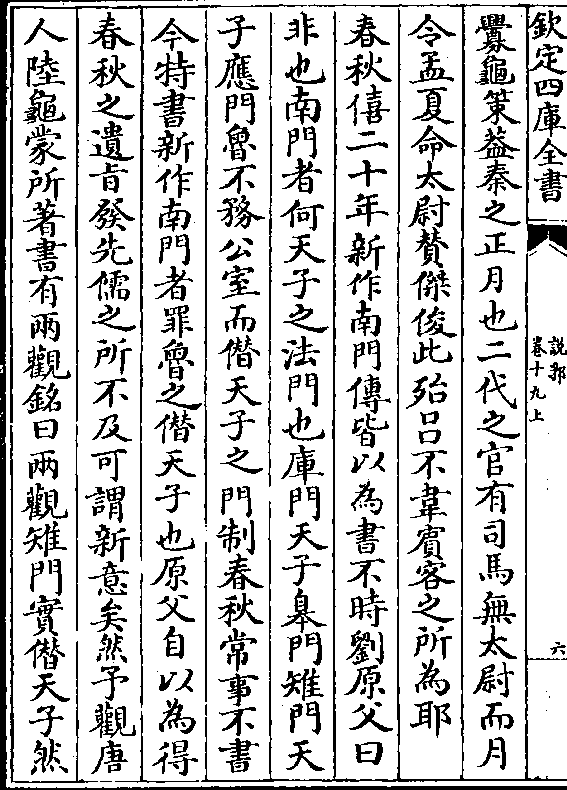 欽定四庫全書
說郛
卷十九上
六
釁龜筴葢秦之正月也二代之官有司馬無太尉而月
令孟夏命太尉賛傑俊此殆吕不韋賔客之所為耶
春秋僖二十年新作南門傳皆以為書不時劉原父曰
非也南門者何天子之法門也庫門天子臯門雉門天
子應門魯不務公室而僭天子之門制春秋常事不書
今特書新作南門者罪魯之僭天子也原父自以為得
春秋之遺旨發先儒之所不及可謂新意矣然予觀唐
人陸龜蒙所著書有兩觀銘曰兩觀雉門實僭天子然